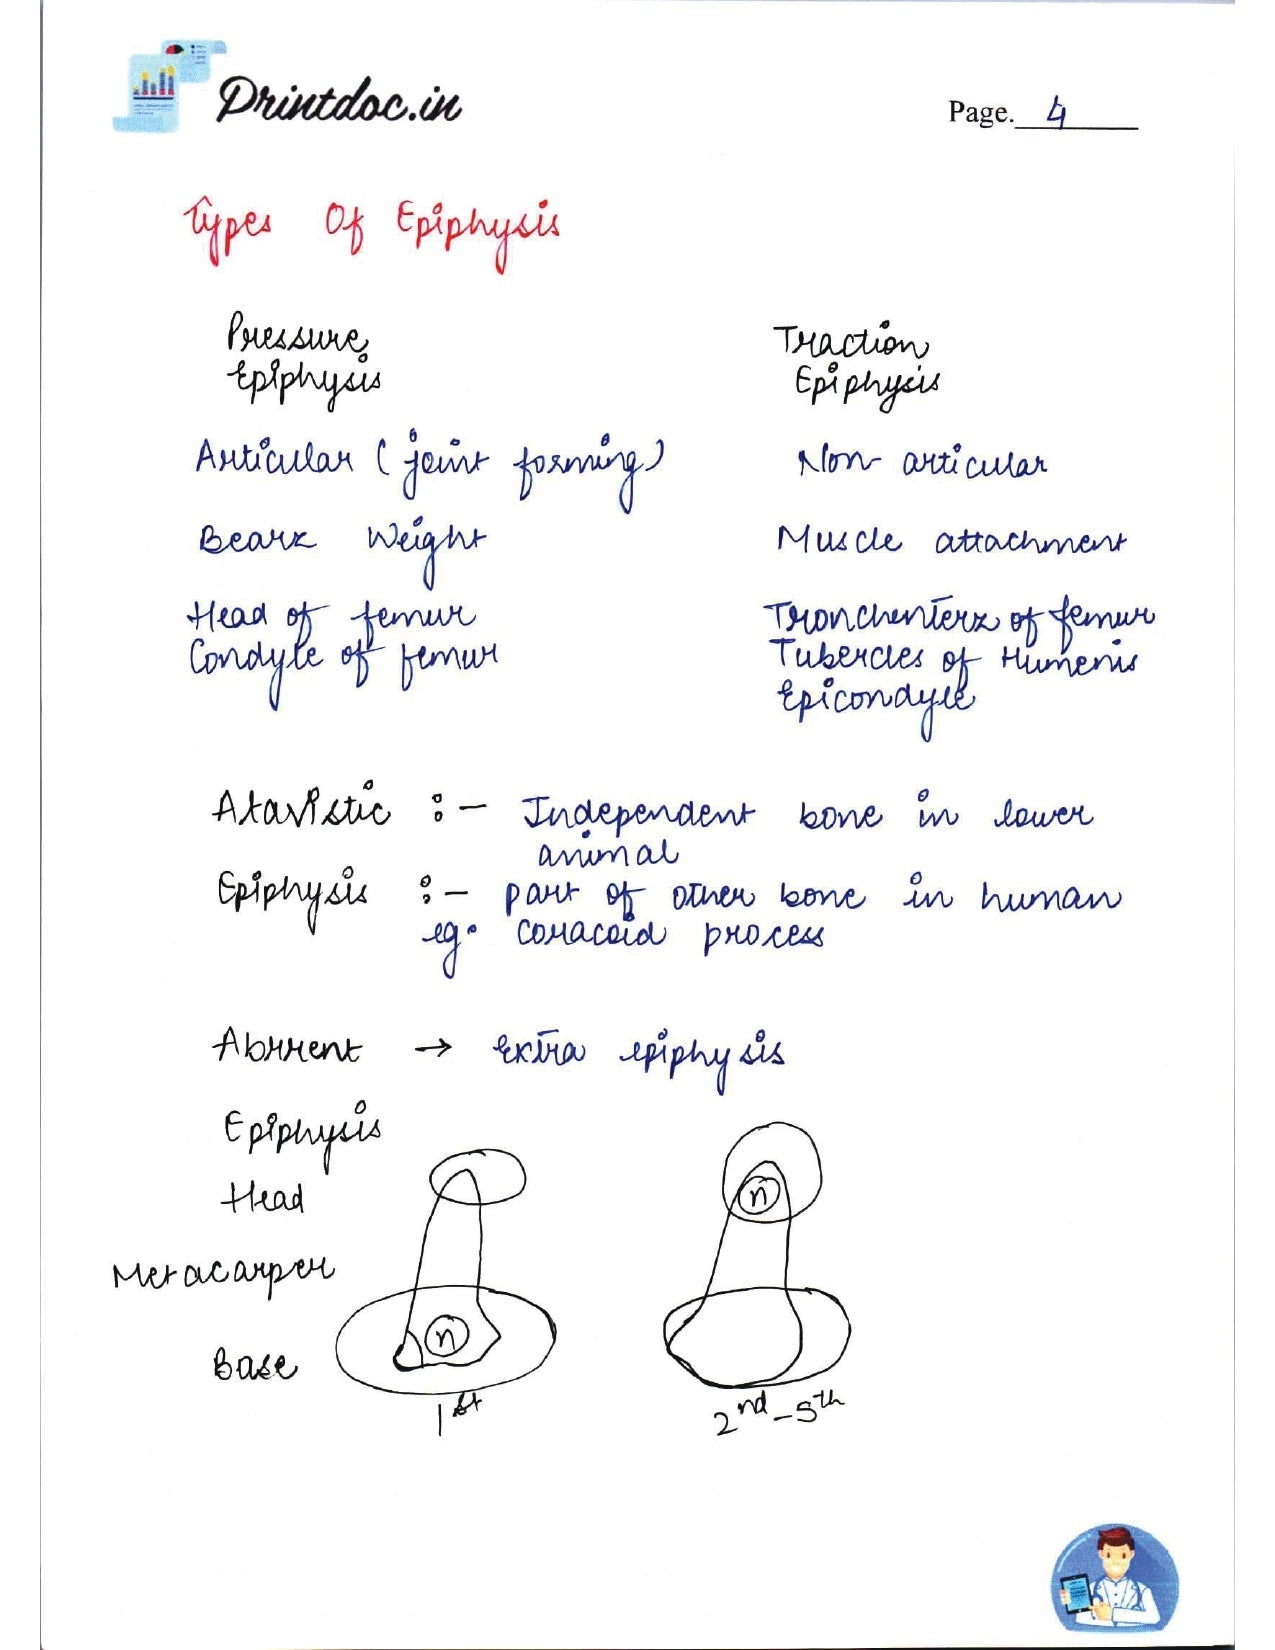 Printdoc.in
Page. 4
Types Of Epiphysis
Pressure
Epiphysis
Traction
Epiphysis
Articular (joint forming)
Non articular
Bearz Weight
Muscle attachment
Head of femur
Condyle of femur
Tronchenterz of femur
Tubercles of Humenis
Epicondyle
Atavistic :- Independent bone in lower
animal
Epiphysis :- part of other bone in human
eg. coracoid process
Abrrent → extra epiphysis
Epiphysis
Head
n
Metacarper
n
Base
1st
2nd-5th